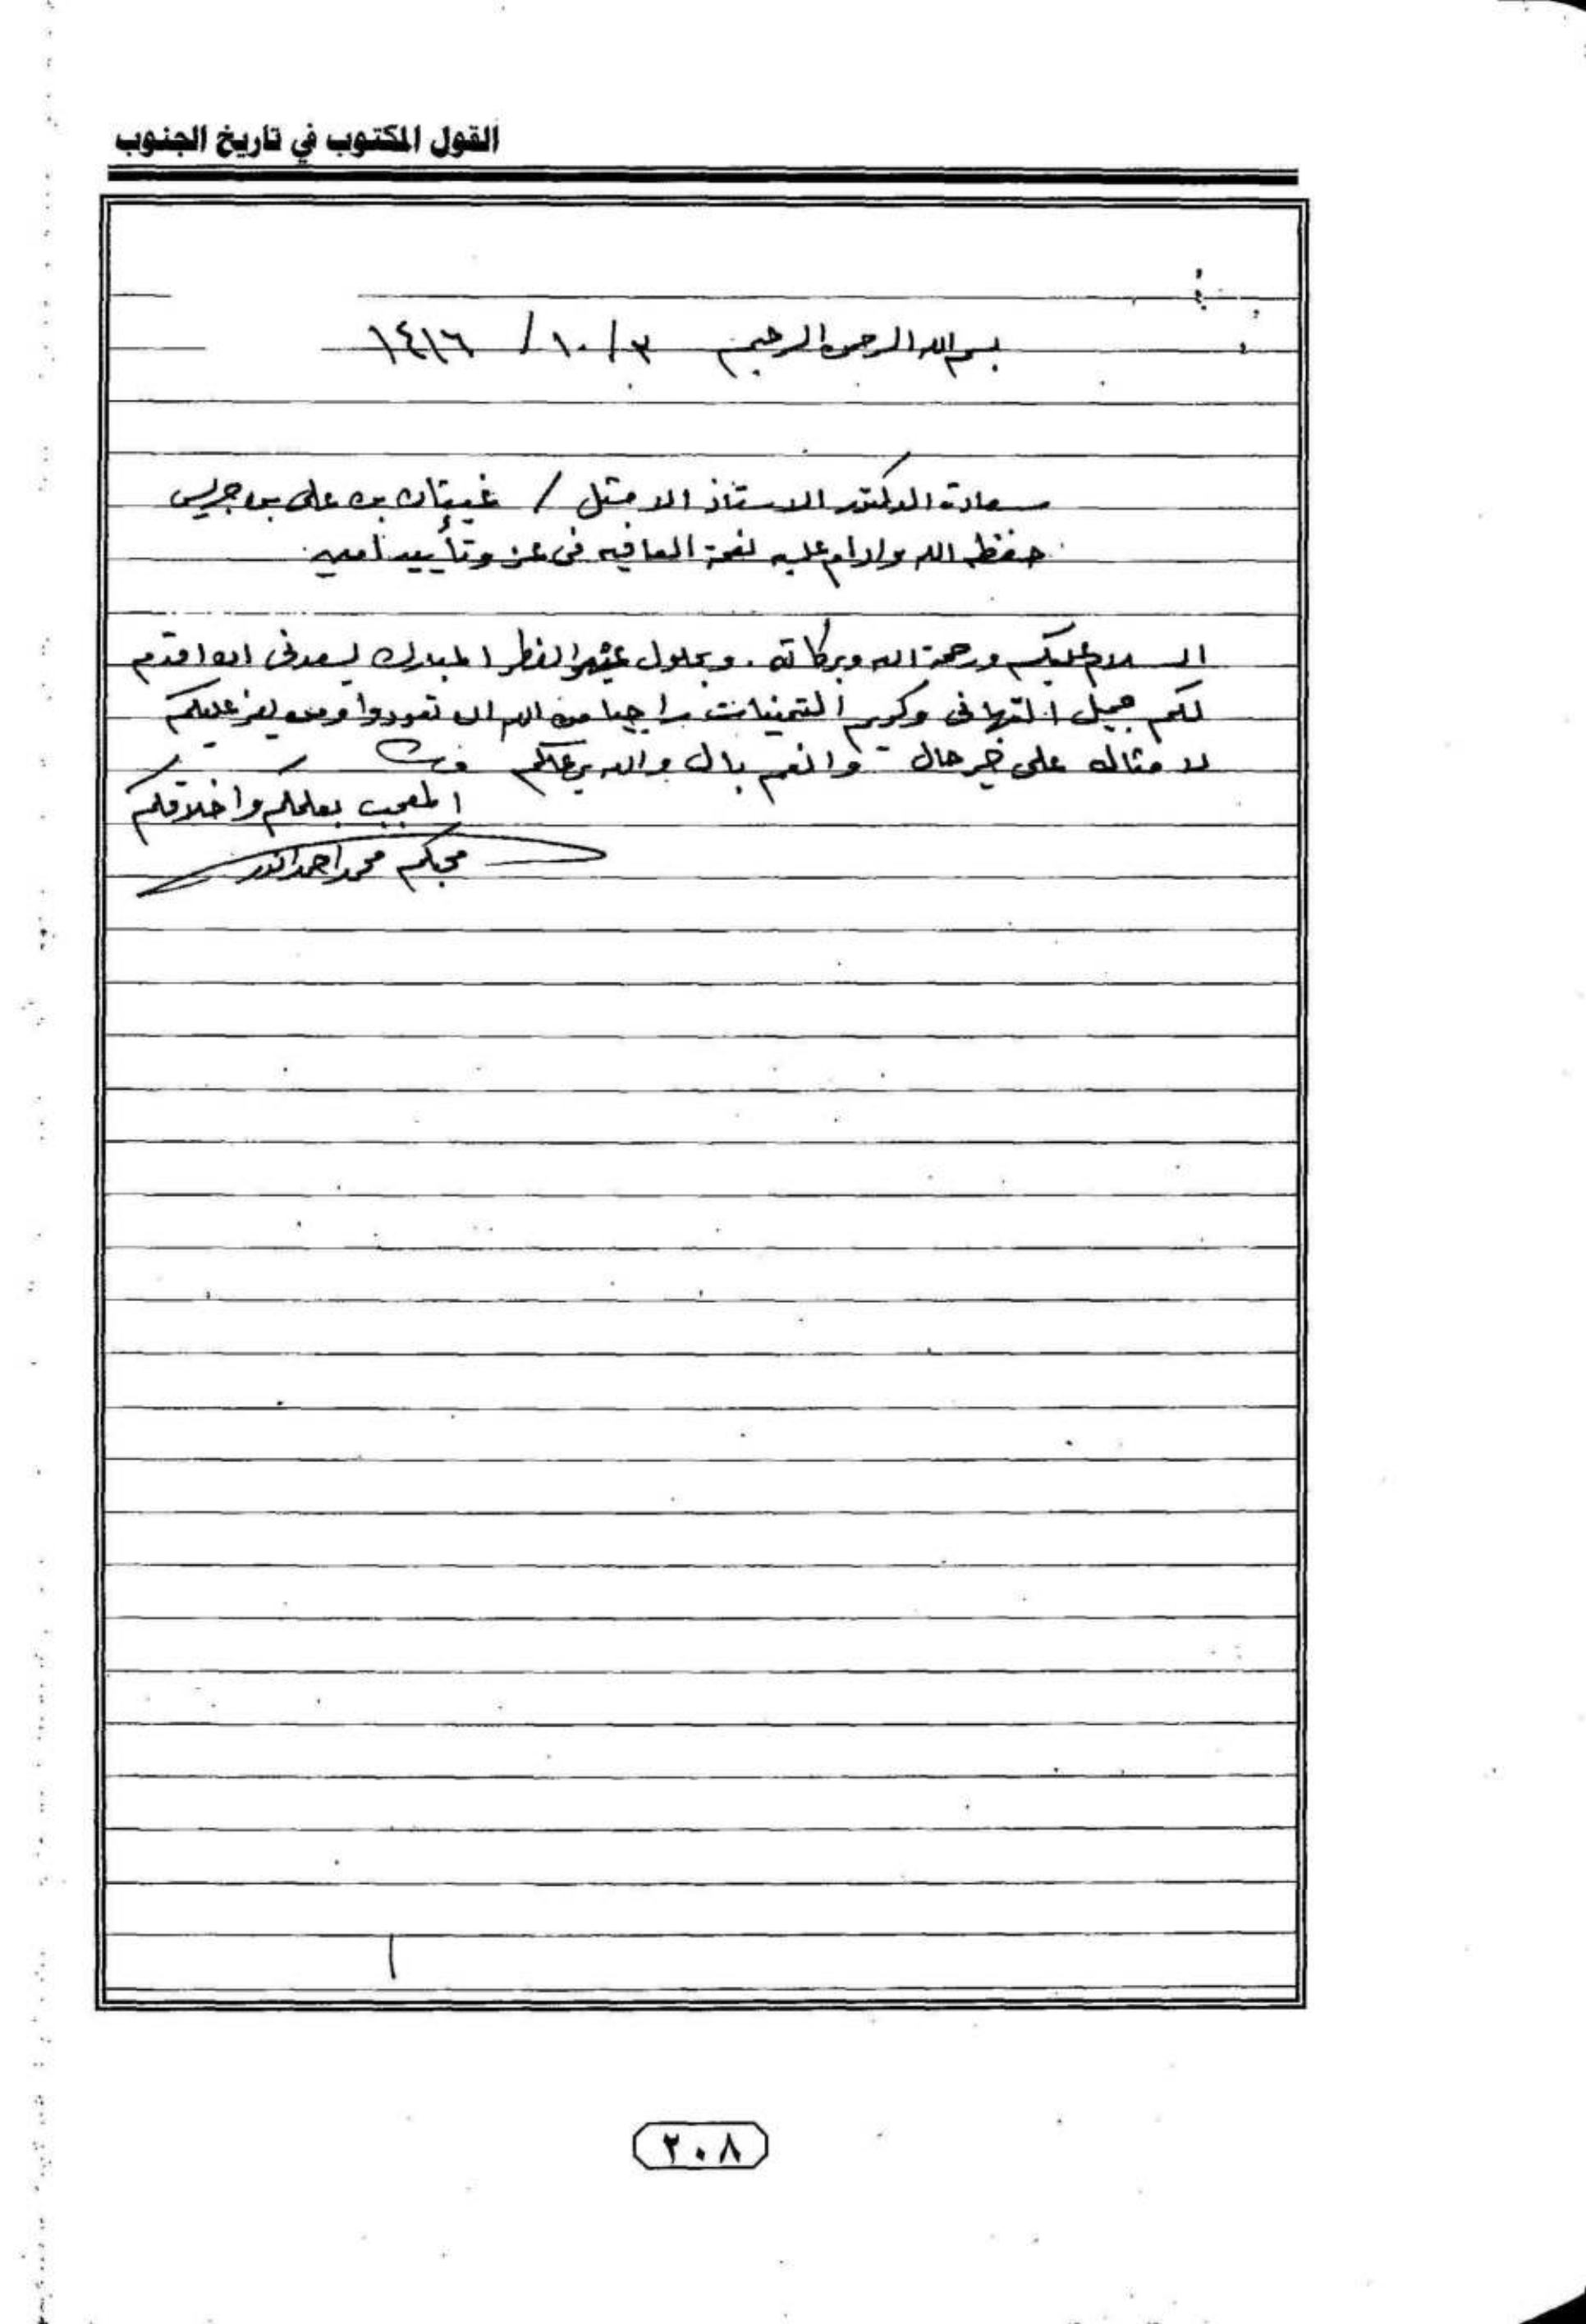 القول المكتوب في تاريخ الجنوب
بسم الله الرحمن الرحيم ٣/ ١٠/ ١٤١٦
سعادة الدكتور الاستاذ الامثل / غيثان بن علي بن جريس
حفظه الله وادام عليه نعمة العافيه في عز وتأييد امين
السلام عليكم ورحمة الله وبركاته . وبحلول عيد الفطر المبارك يسعدني ان اقدم
لكم جميل التهاني وكريم التمنيات راجيا من الله ان تعودوا ومن يعز عليكم
لامثاله على خير حال وانعم بال والله يرعاكم
المعجب بعلمكم واخلاقكم
محبكم محمد احمد انور
٢٠٨